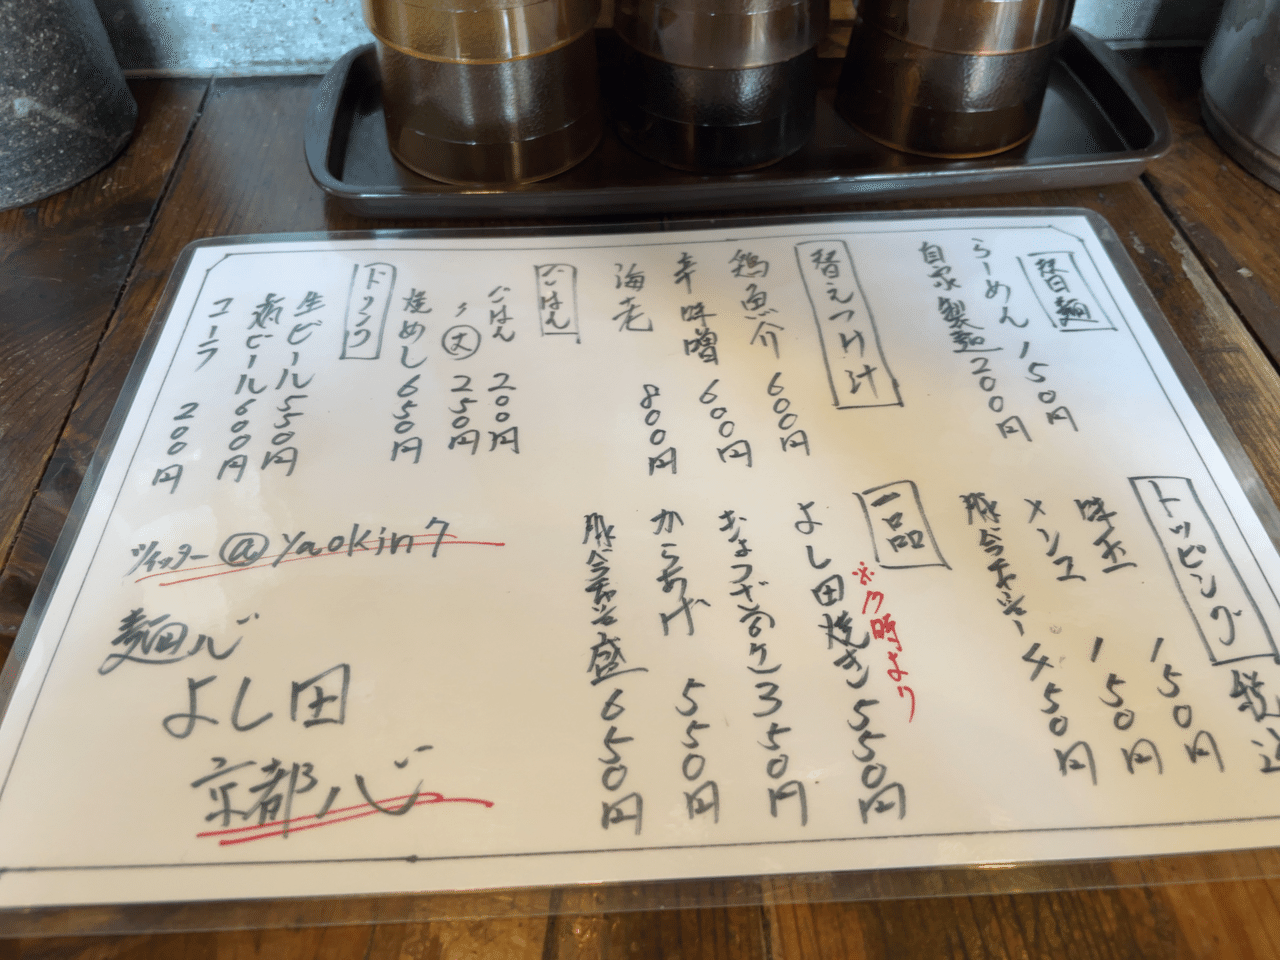 替麺
らーめん 150円
自家製麺 200円
替えつけ汁
鶏魚介 600円
辛味噌 600円
海老 800円
ごはん
ごはん 200円
〃 大 250円
焼めし 650円
ドリンク
生ビール 550円
瓶ビール 600円
コーラ 200円
トッピング 税込
味玉 150円
メンマ 150円
豚チャーシュー 450円
一品
※17時より
よし田焼き 550円
ぎょうざ(6ケ) 350円
からあげ 550円
盛 650円
ツイッター @yaokin7
麺ル
よし田
京都